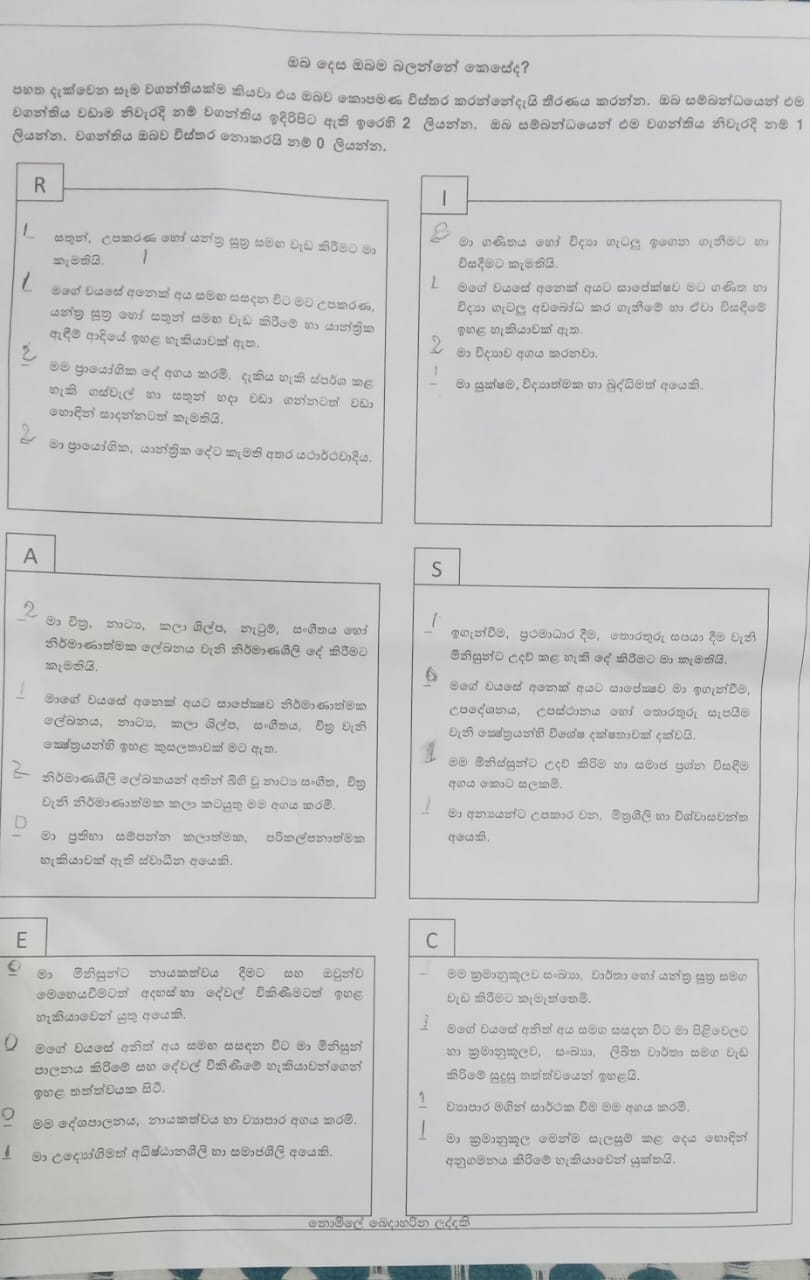 ඔබ දෙස ඔබම බලන්නේ කෙසේද?
පහත දැක්වෙන සෑම වගන්තියක්ම කියවා එය ඔබව කොපමණ විස්තර කරන්නේදැයි තීරණය කරන්න. ඔබ සම්බන්ධයෙන් එම
වගන්තිය වඩාම නිවැරදි නම් වගන්තිය ඉදිරිපිට ඇති ඉරෙහි 2 ලියන්න. ඔබ සම්බන්ධයෙන් එම වගන්තිය නිවැරදි නම් 1
ලියන්න. වගන්තිය ඔබව විස්තර නොකරයි නම් 0 ලියන්න.
R
1 සතුන්, උපකරණ හෝ යන්ත්‍ර සූත්‍ර සමඟ වැඩ කිරීමට මා
කැමතියි. 1
1 මගේ වයසේ අනෙක් අය සමඟ සසඳන විට මට උපකරණ,
යන්ත්‍ර සූත්‍ර හෝ සතුන් සමඟ වැඩ කිරීමේ හා යාන්ත්‍රික
ඇඳීම් ආදියේ ඉහළ හැකියාවක් ඇත.
2 මම ප්‍රායෝගික දේ අගය කරමි. දැකිය හැකි ස්පර්ශ කළ
හැකි ගස්වැල් හා සතුන් හදා වඩා ගන්නටත් වඩා
හොඳින් සාදන්නටත් කැමතියි.
2 මා ප්‍රායෝගික, යාන්ත්‍රික දේට කැමති අතර යථාර්ථවාදිය.
I
2 මා ගණිතය හෝ විද්‍යා ගැටලු ඉගෙන ගැනීමට හා
විසඳීමට කැමතියි.
1 මගේ වයසේ අනෙක් අයට සාපේක්ෂව මට ගණිත හා
විද්‍යා ගැටලු අවබෝධ කර ගැනීමේ හා ඒවා විසඳීමේ
ඉහළ හැකියාවක් ඇත.
2 මා විද්‍යාව අගය කරනවා.
1 මා සූක්ෂම, විද්‍යාත්මක හා බුද්ධිමත් අයෙකි.
A
2 මා චිත්‍ර, නාට්‍ය, කලා ශිල්ප, නැටුම්, සංගීතය හෝ
නිර්මාණාත්මක ලේඛනය වැනි නිර්මාණශීලී දේ කිරීමට
කැමතියි.
1 මාගේ වයසේ අනෙක් අයට සාපේක්‍ෂව නිර්මාණාත්මක
ලේඛනය, නාට්‍ය, කලා ශිල්ප, සංගීතය, චිත්‍ර වැනි
ක්‍ෂේත්‍රයන්හි ඉහළ කුසලතාවක් මට ඇත.
2 නිර්මාණශීලී ලේඛකයන් අතින් බිහි වූ නාට්‍ය සංගීත, චිත්‍ර
වැනි නිර්මාණාත්මක කලා කටයුතු මම අගය කරමි.
0 මා ප්‍රතිභා සම්පන්න කලාත්මක, පරිකල්පනාත්මක
හැකියාවක් ඇති ස්වාධීන අයෙකි.
S
1 ඉගැන්වීම, ප්‍රථමාධාර දීම, තොරතුරු සපයා දීම වැනි
මිනිසුන්ට උදව් කළ හැකි දේ කිරීමට මා කැමතියි.
මගේ වයසේ අනෙක් අයට සාපේක්‍ෂව මා ඉගැන්වීම,
උපදේශනය, උපස්ථානය හෝ තොරතුරු සැපයීම
වැනි ක්‍ෂේත්‍රයන්හි විශේෂ දක්ෂතාවක් දක්වයි.
1 මම මිනිස්සුන්ට උදව් කිරීම හා සමාජ ප්‍රශ්න විසඳීම
අගය කොට සලකමි.
1 මා අන්‍යයන්ට උපකාර වන, මිත්‍රශීලී හා විශ්වාසවන්ත
අයෙකි.
E
0 මා මිනිසුන්ට නායකත්වය දීමට සහ ඔවුන්ව
මෙහෙයවීමටත් අදහස් හා දේවල් විකිණීමටත් ඉහළ
හැකියාවෙන් යුතු අයෙකි.
0 මගේ වයසේ අනිත් අය සමඟ සසඳන විට මා මිනිසුන්
පාලනය කිරීමේ සහ දේවල් විකිණීමේ හැකියාවන්ගෙන්
ඉහළ තත්ත්වයක සිටී.
0 මම දේශපාලනය, නායකත්වය හා ව්‍යාපාර අගය කරමි.
1 මා උද්‍යෝගිමත් අධිෂ්ඨානශීලී හා සමාජශීලී අයෙකි.
C
1 මම ක්‍රමානුකූලව සංඛ්‍යා, වාර්තා හෝ යන්ත්‍ර සූත්‍ර සමග
වැඩ කිරීමට කැමැත්තෙමි.
මගේ වයසේ අනිත් අය සමග සසඳන විට මා පිළිවෙලට
හා ක්‍රමානුකූලව, සංඛ්‍යා, ලිඛිත වාර්තා සමග වැඩ
කිරීමේ සුදුසු තත්ත්වයෙන් ඉහළයි.
ව්‍යාපාර මගින් සාර්ථක වීම මම අගය කරමි.
1 මා ක්‍රමානුකූල මෙන්ම සැලසුම් කළ දෙය හොඳින්
අනුගමනය කිරීමේ හැකියාවෙන් යුක්තයි.
නොමිලේ බෙදාහරින ලද්දකි